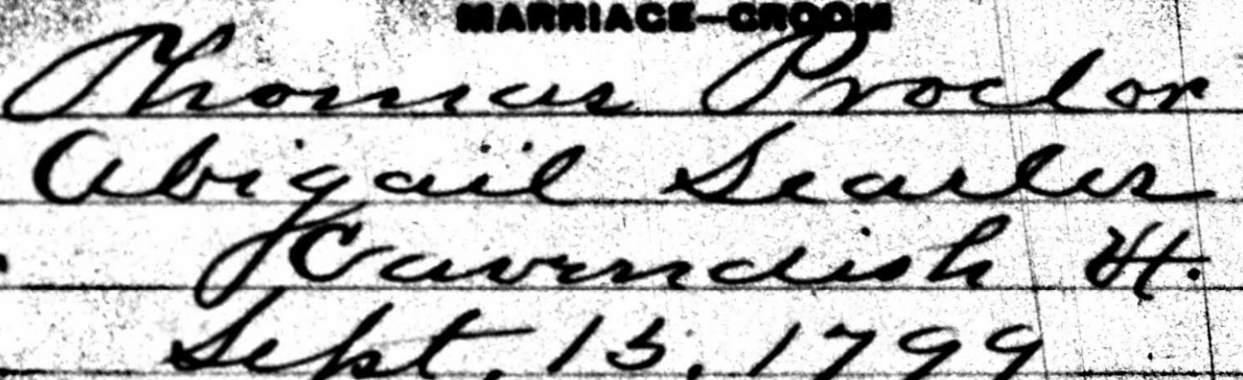 MARRIAGE—GROOM
Thomas Proctor
Abigail Searles
Cavendish Vt.
Sept. 15, 1799